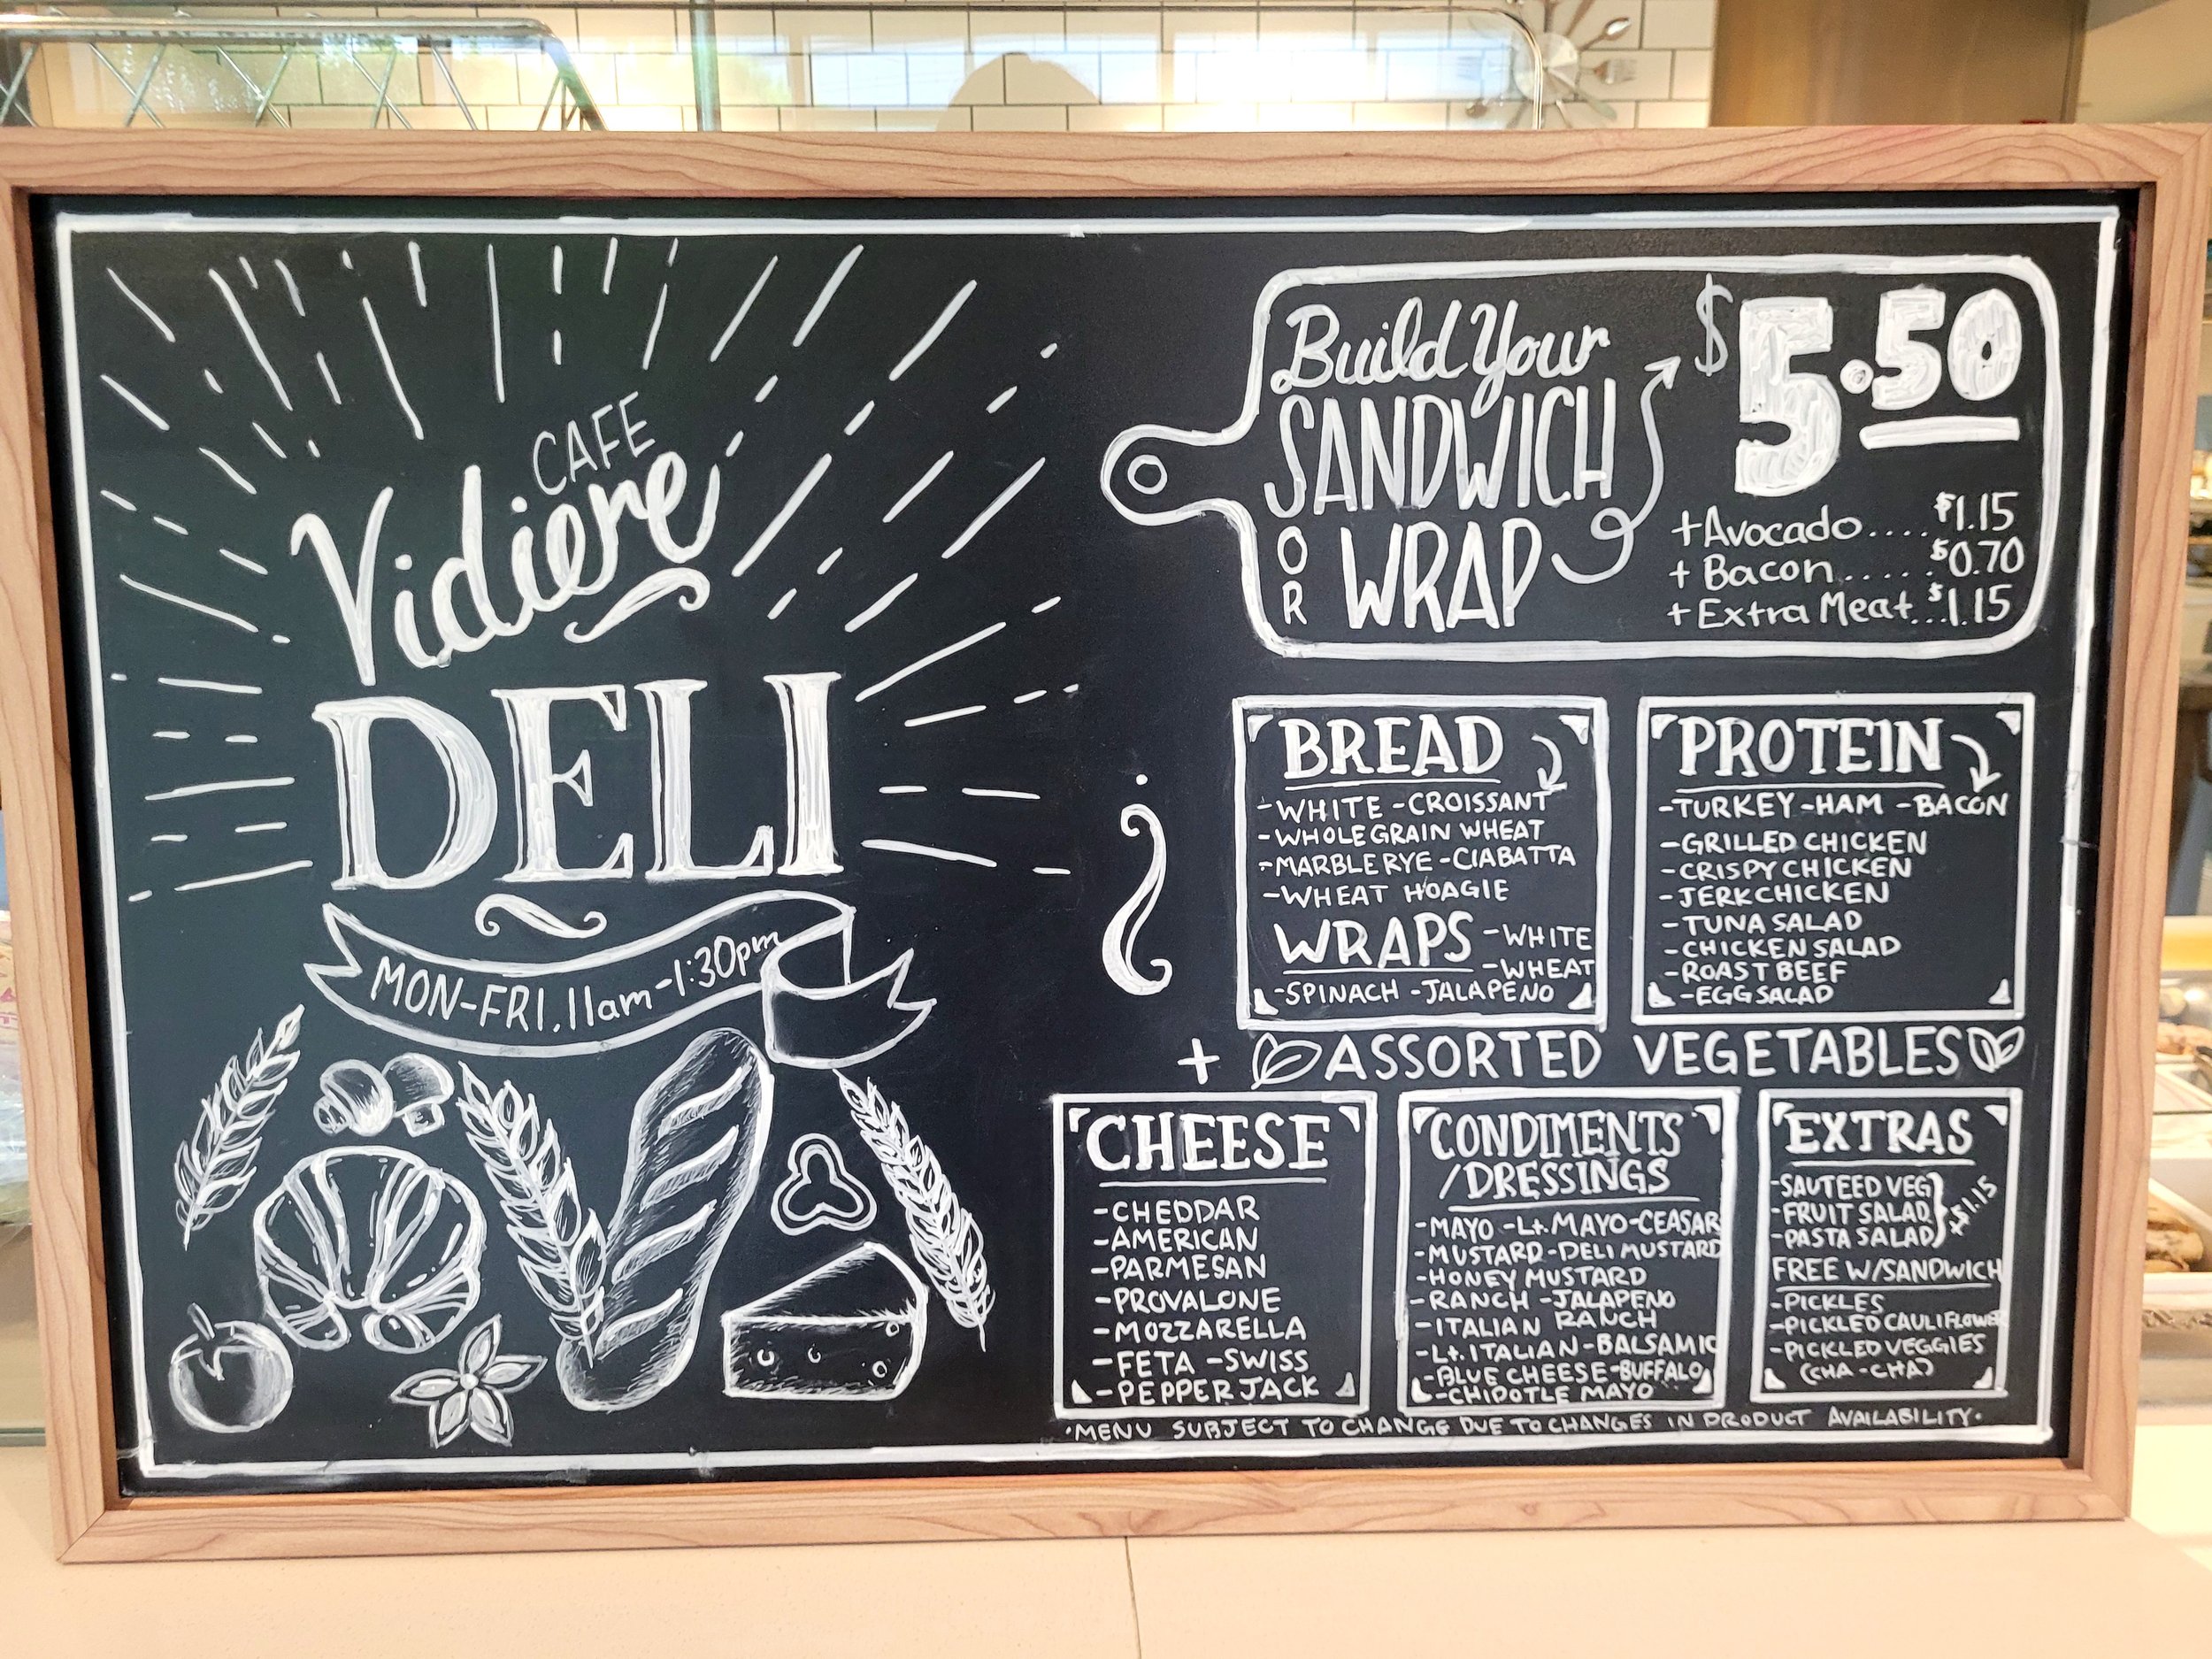 CAFE
Vidiere
DELI
MON-FRI. 11am-1:30pm
Build Your
SANDWICH
OR WRAP
$5.50
+Avocado....$1.15
+Bacon.....$0.70
+Extra Meat...$1.15
BREAD
-WHITE -CROISSANT
-WHOLEGRAIN WHEAT
-MARBLE RYE -CIABATTA
-WHEAT HOAGIE
WRAPS -WHITE
-WHEAT
-SPINACH -JALAPEÑO
PROTEIN
-TURKEY -HAM -BACON
-GRILLED CHICKEN
-CRISPY CHICKEN
-JERK CHICKEN
-TUNA SALAD
-CHICKEN SALAD
-ROAST BEEF
-EGG SALAD
+ ASSORTED VEGETABLES
CHEESE
-CHEDDAR
-AMERICAN
-PARMESAN
-PROVALONE
-MOZZARELLA
-FETA -SWISS
-PEPPER JACK
CONDIMENTS
/DRESSINGS
-MAYO -Lt. MAYO -CEASAR
-MUSTARD -DELI MUSTARD
-HONEY MUSTARD
-RANCH -JALAPEÑO
-ITALIAN RANCH
-Lt. ITALIAN -BALSAMIC
-BLUE CHEESE -BUFFALO
-CHIPOTLE MAYO
EXTRAS
-SAUTEED VEG
-FRUIT SALAD
-PASTA SALAD
+$1.15
FREE W/SANDWICH
-PICKLES
-PICKLED CAULIFLOWER
-PICKLED VEGGIES
(CHA-CHA)
·MENU SUBJECT TO CHANGE DUE TO CHANGES IN PRODUCT AVAILABILITY·